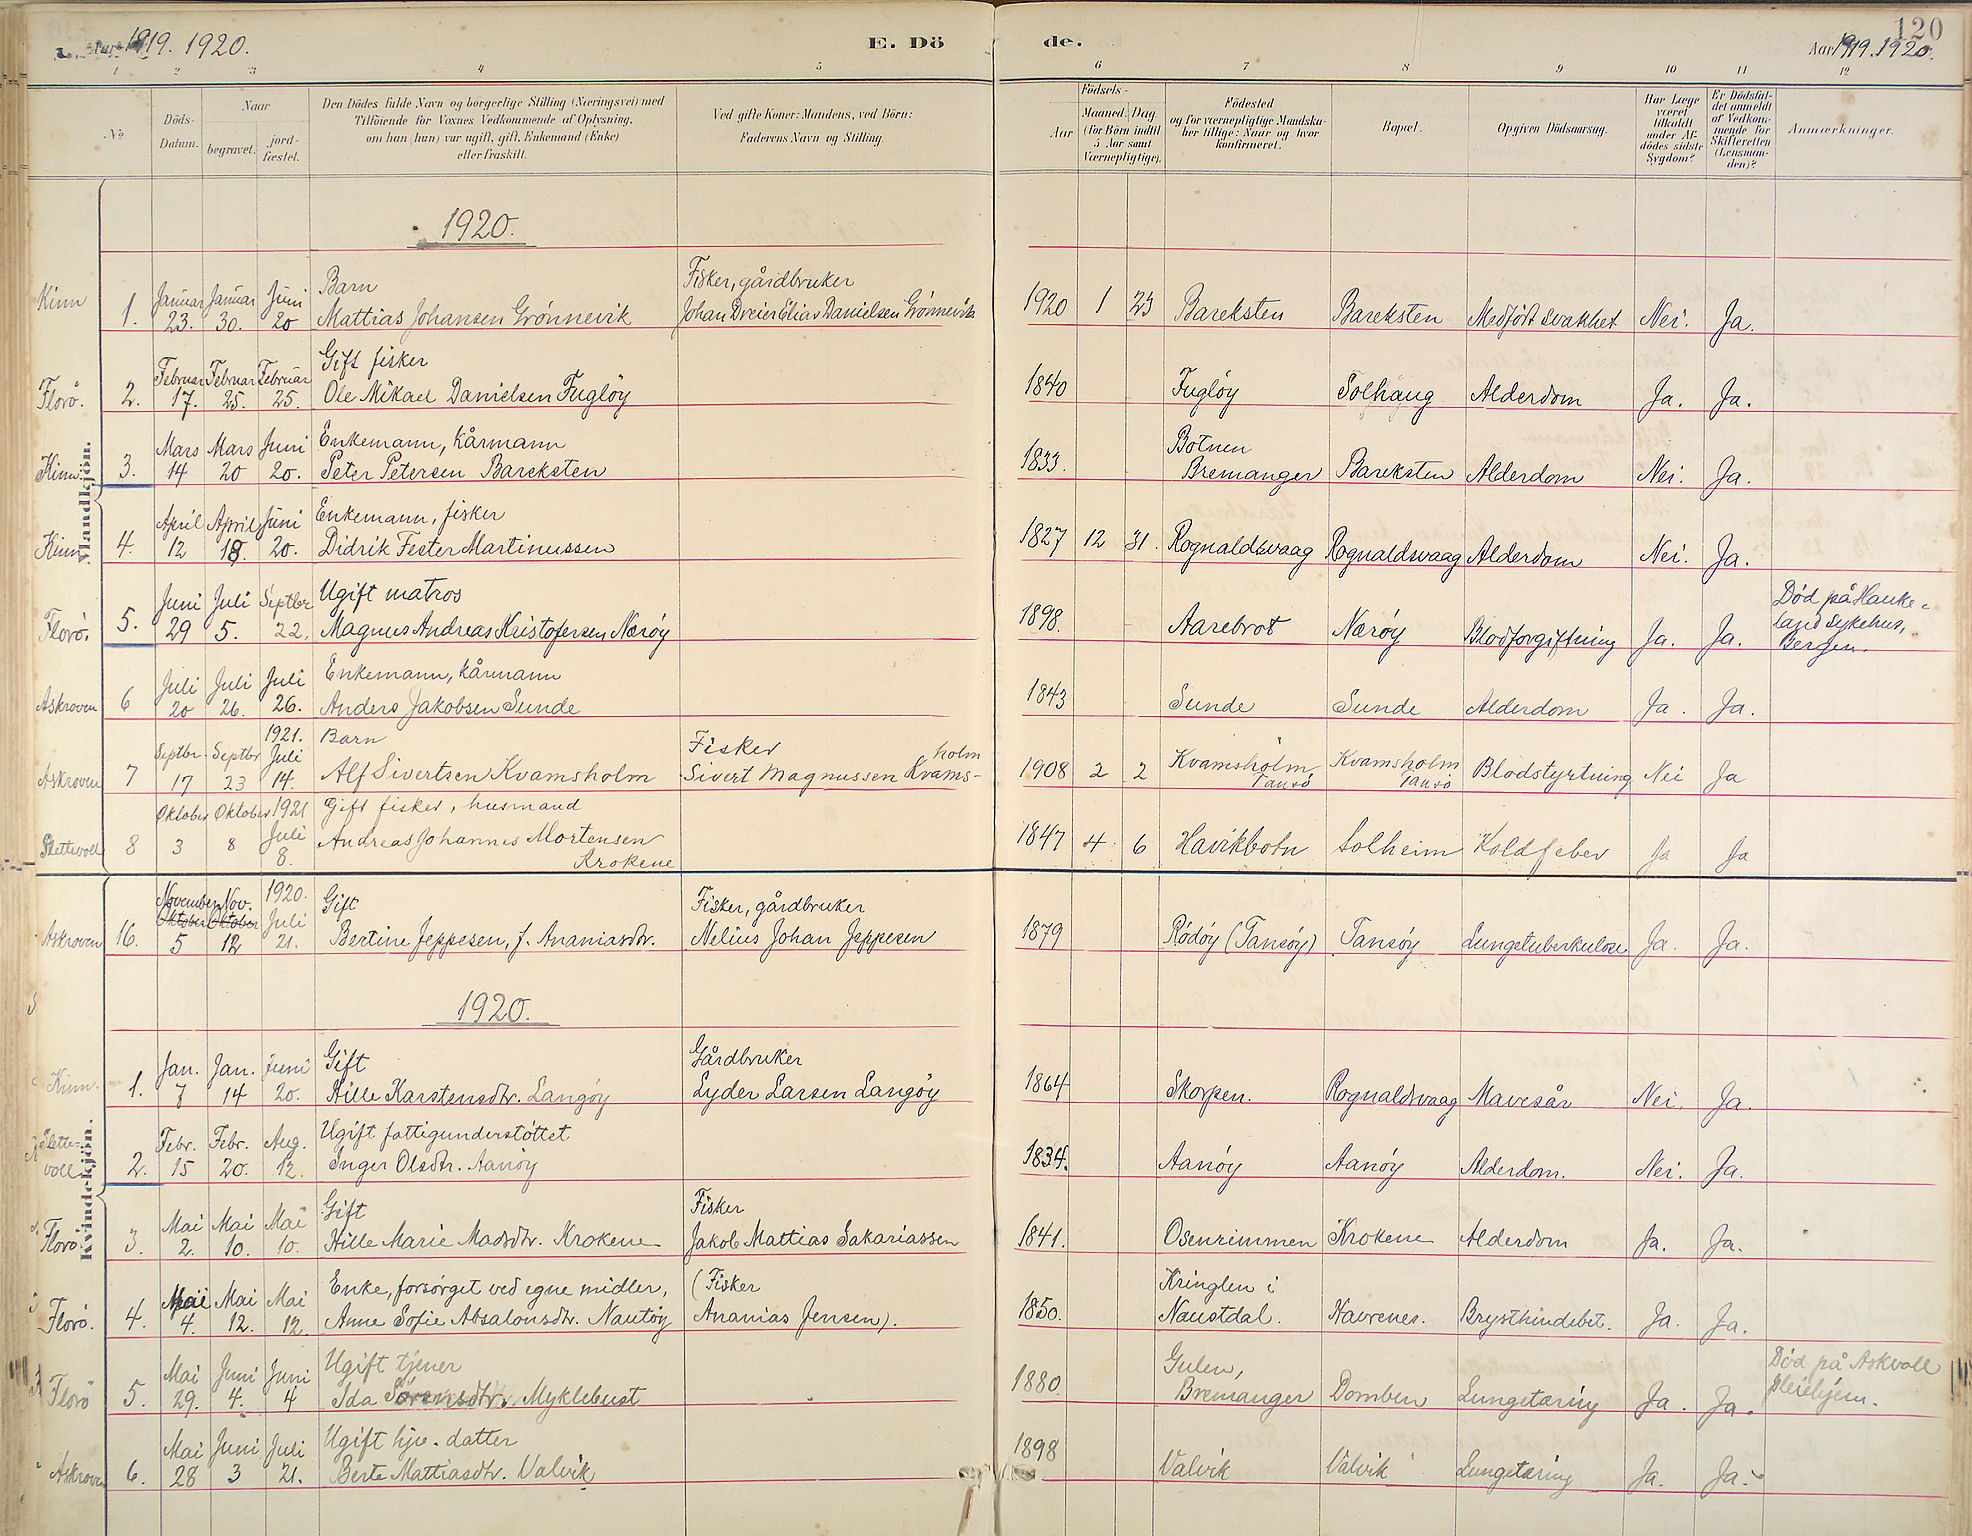 1919. 1920.
E. Dö
de.
120
Aar 1919. 1920.
1 2 3 4 5 6 7 8 9 10 11 12
No
Döds-Datum.
Naar
begravet.
jord-fæstet.
Den Dödes fulde Navn og borgerlige Stilling (Næringsvei) med
Tilföiende for Voxnes Vedkommende af Oplysning,
om han (hun) var ugift, gift, Enkemand (Enke)
eller fraskilt.
Ved gifte Koner: Mandens, ved Börn:
Faderens Navn og Stilling.
Födsels-
Aar
Maaned. Dag.
(for Börn indtil
5 Aar samt
Værnepligtige).
Födested
og for værnepligtige Mandska-
ber tillige: Naar og hvor
konfirmeret.
Bopæl.
Opgiven Dödsaarsag.
Har Læge
været
tilkaldt
under Af-
dödes sidste
Sygdom?
Er Dödsfal-
det anmeldt
af Vedkom-
mende for
Skifteretten
(Lensman-
den)?
Anmærkninger.
Mandkjön.
1920.
Kinn 1. Januar 23. Januar 30. Juni 20 Barn
Mattias Johansen Grönnevik Fisker, gårdbruker
Johan Dreier Elias Danielsen Grönnevik 1920 1 23 Bareksten Bareksten Medfödt svakhet Nei. Ja.
Florö. 2. Februar 17. Februar 25. Februar 25. Gift fisker
Ole Mikael Danielsen Fuglöy 1840 Fuglöy Solhaug Alderdom Ja. Ja.
Kinn 3. Mars 14 Mars 20 Juni 20. Enkemann, kårmann
Peter Petersen Bareksten 1833. Botnen
Bremanger Bareksten Alderdom Nei. Ja.
Kinn 4. April 12 April 18. Juni 20. Enkemann, fisker
Didrik Fester Martinussen 1827 12 31. Rognaldsvaag Rognaldsvaag Alderdom Nei. Ja.
Florö. 5. Juni 29 Juli 5. Septbr 22. Ugift matros
Magnus Andreas Kristofersen Nærøy 1898. Aarebrot Nærøy Blodforgiftning Ja. Ja. Död på Hauke-
land sykehus,
Bergen.
Askroven 6 Juli 20 Juli 26. Juli 26. Enkemann, kårmann
Anders Jakobsen Sunde 1843 Sunde Sunde Alderdom Ja. Ja.
Askroven 7 Septbr. 17 Septbr 23 1921. Juli 14. Barn
Alf Sivertsen Kvamsholm Fisker
Sivert Magnussen Kvams-holm 1908 2 2 Kvamsholm
Tansö Kvamsholm
Tansö Blodstyrtning Nei Ja
Slettevoll 8 Oktober 3 Oktober 8 1921 Juli 8. Gift fisker, husmand
Andreas Johannes Mortensen
Krokene 1847 4 6 Havikbotn Solheim Koldfeber Ja Ja
Askroven 16. November Oktober 5 Nov. Oktober 12 1920. Juli 21. Gift
Bertine Jeppesen, f. Ananiasdtr. Fisker, gårdbruker
Nelius Johan Jeppesen 1879 Rödöy (Tansöy) Tansöy Lungetuberkulose Ja. Ja.
Kvindekjön.
1920.
Kinn. 1. Jan. 7 Jan. 14 Juni 20. Gift
Hille Karstensdtr. Langöy Gårdbruker
Lyder Larsen Langöy 1864 Skorpen. Rognaldsvaag Mavesår Nei. Ja.
Slette-
voll 2. Febr. 15 Febr. 20. Aug. 12. Ugift fattigunderstöttet
Inger Olsdtr. Aanöy 1834. Aanöy Aanöy Alderdom. Nei. Ja.
Florö. 3. Mai 2. Mai 10. Mai 10. Gift
Hille Marie Madsdtr. Krokene Fisker
Jakob Mattias Sakariassen 1841. Osenrimmen Krokene Alderdom Ja. Ja.
Florö. 4. Mai 4. Mai 12. Mai 12. Enke, forsörget ved egne midler,
Anne Sofie Absalonsdtr. Nautöy (Fisker
Ananias Jensen). 1850. Kringlen i
Naustdal. Havrenes. Brysthindebet. Ja. Ja.
Florö 5. Mai 29. Juni 4. Juni 4 Ugift tjener
Ida Sörensdtr. Myklebust 1880. Gulen,
Bremanger Domben Lungetæring Ja. Ja. Död på Askvoll
pleiehjem.
Askroven 6. Mai 28 Juni 3 Juli 21. Ugift hjv. datter
Berte Mattiasdtr. Valvik 1898 Valvik Valvik Lungetæring Ja. Ja.